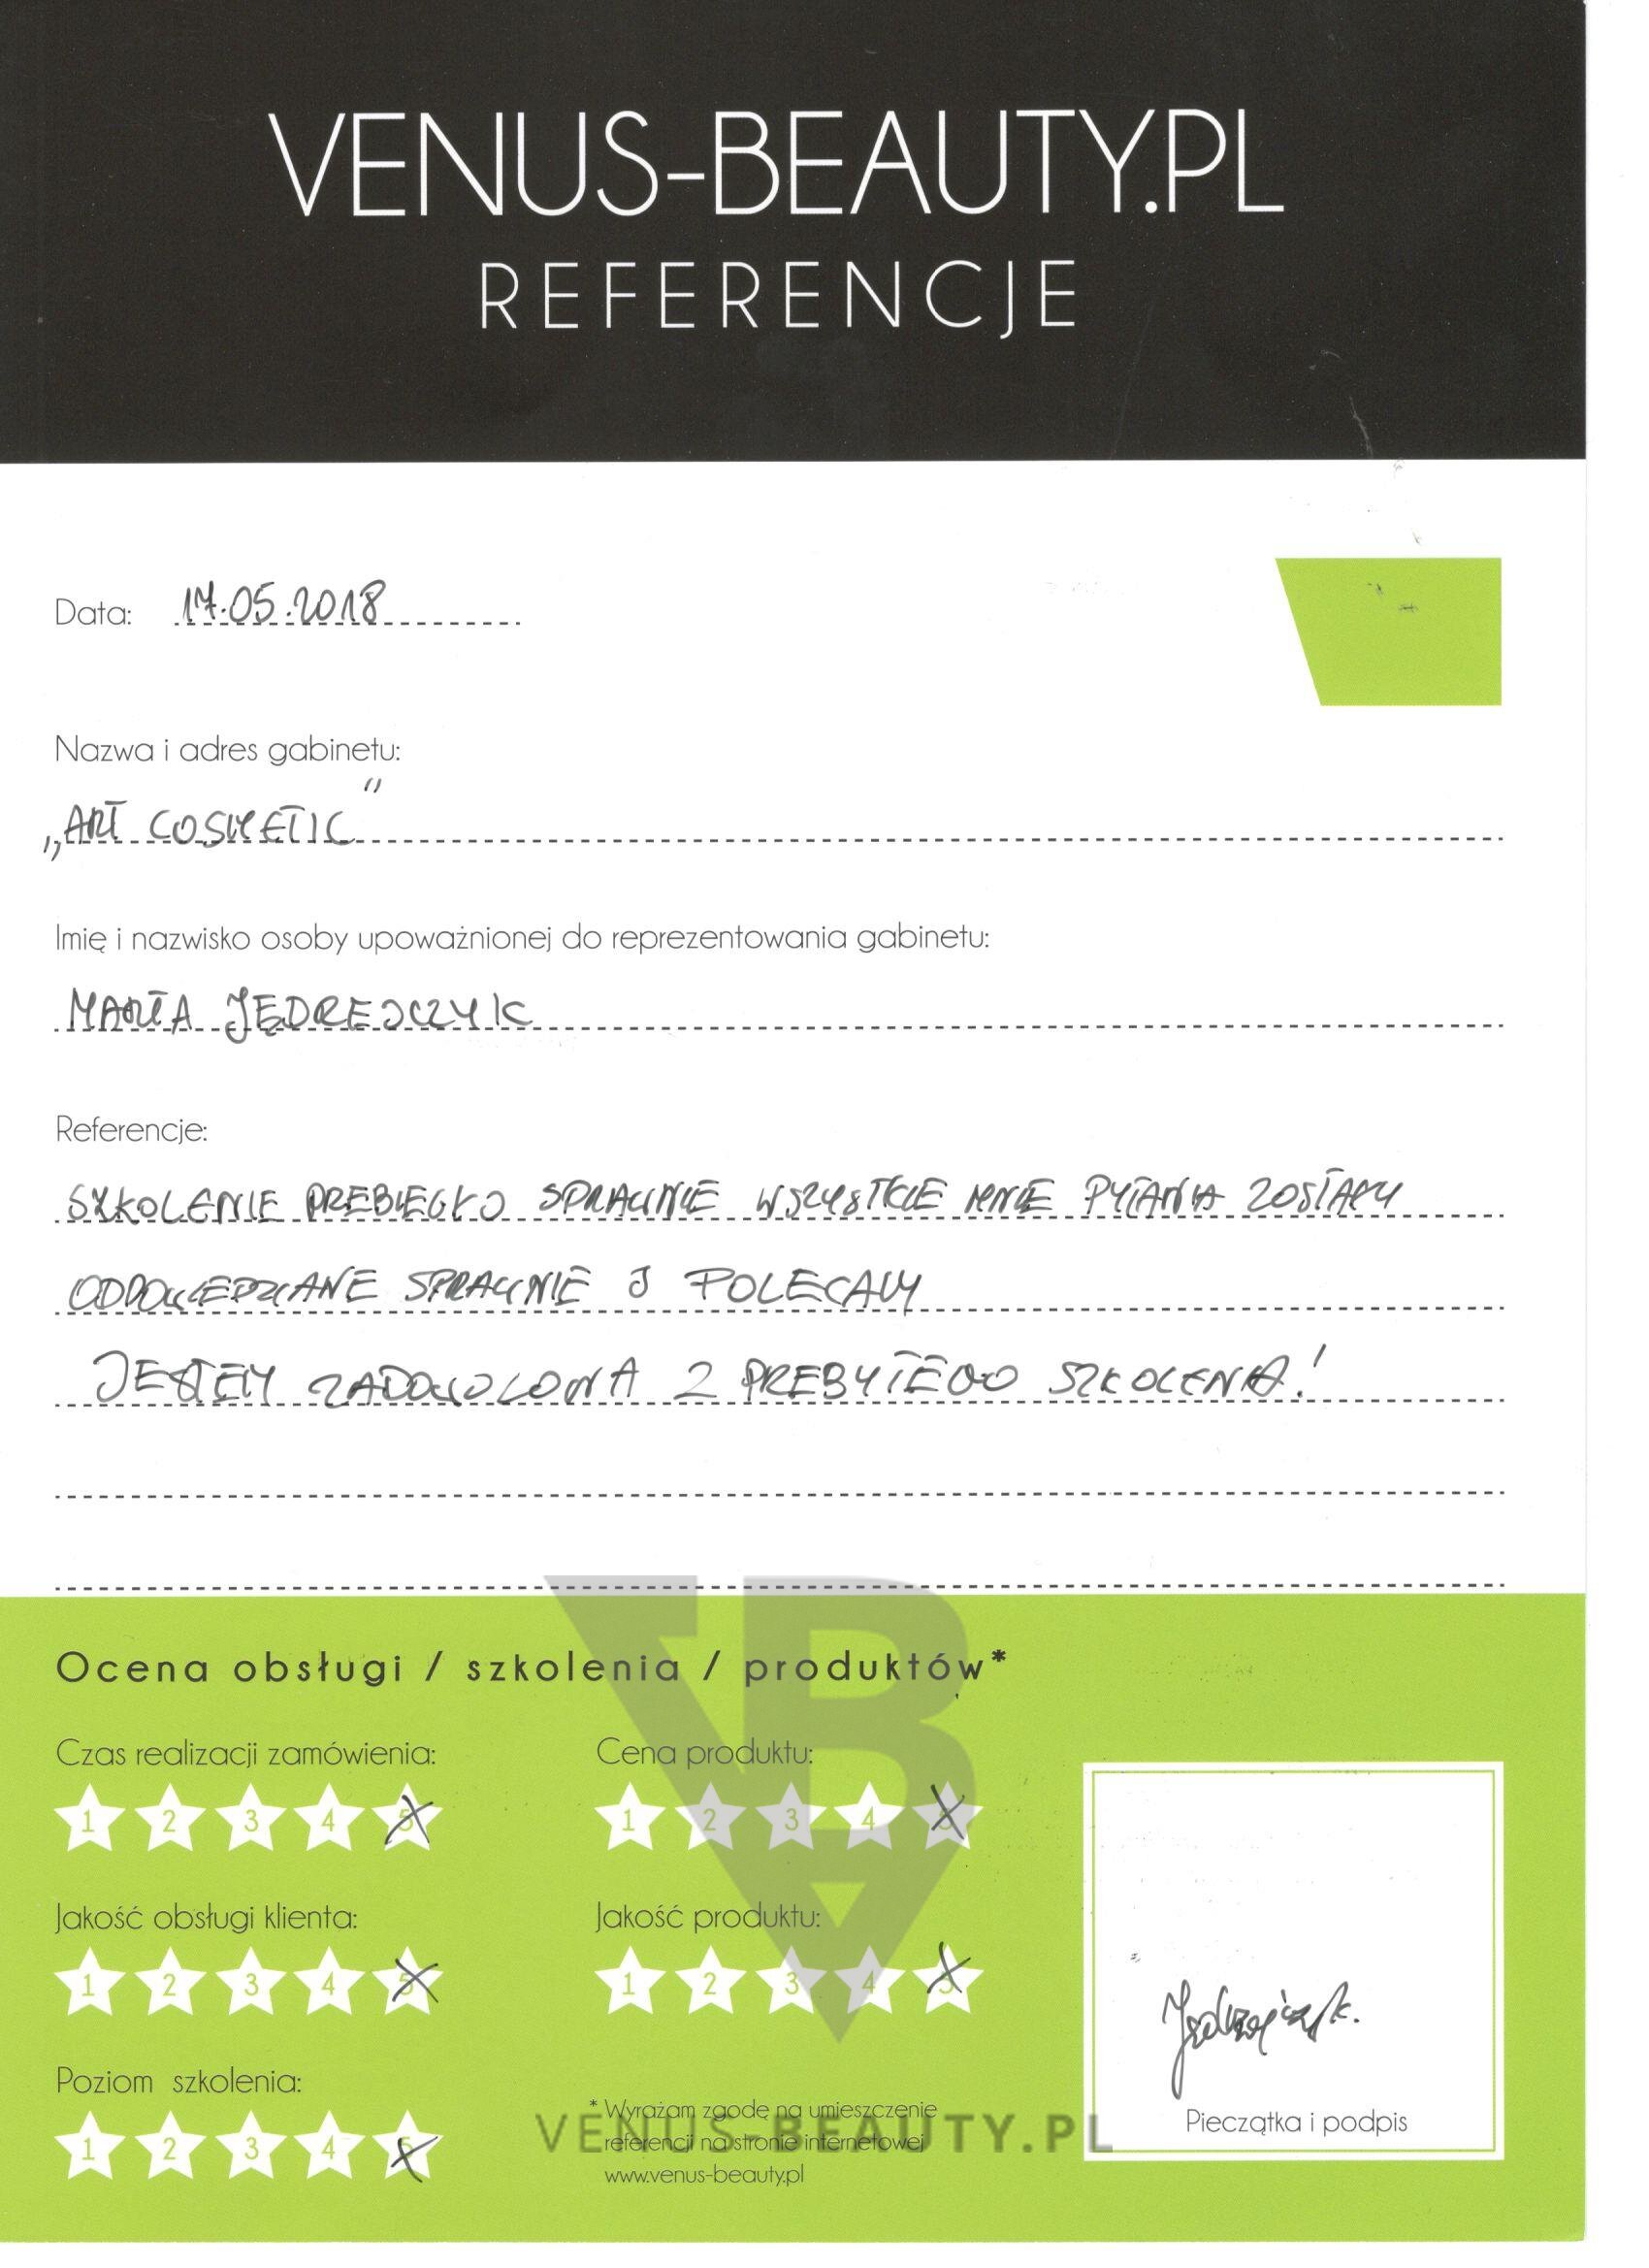 VENUS-BEAUTY.PL
REFERENCJE
Data: 17.05.2018
Nazwa i adres gabinetu:
„ART COSMETIC”
Imię i nazwisko osoby upoważnionej do reprezentowania gabinetu:
MARTA JĘDREJCZYK
Referencje:
SZKOLENIE PREBIEGŁO SPRAWNIE WSZYSTKIE PYTANIA ZOSTAŁY
ODPOWIEDZIANE SPRAWNIE I POLECAM
JESTEM ZADOWOLONA Z PREBYTEGO SZKOLENIA!
Ocena obsługi / szkolenia / produktów*
Czas realizacji zamówienia:
1 2 3 4 5
Cena produktu:
1 2 3 4 5
Jakość obsługi klienta:
1 2 3 4 5
Jakość produktu:
1 2 3 4 5
Poziom szkolenia:
1 2 3 4 5
* Wyrażam zgodę na umieszczenie
referencji na stronie internetowej
www.venus-beauty.pl
Pieczątka i podpis
VENUS-BEAUTY.PL